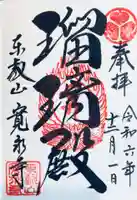 奉拝
令和六年
十二月一日
瑠璃殿
東叡山
寛永寺